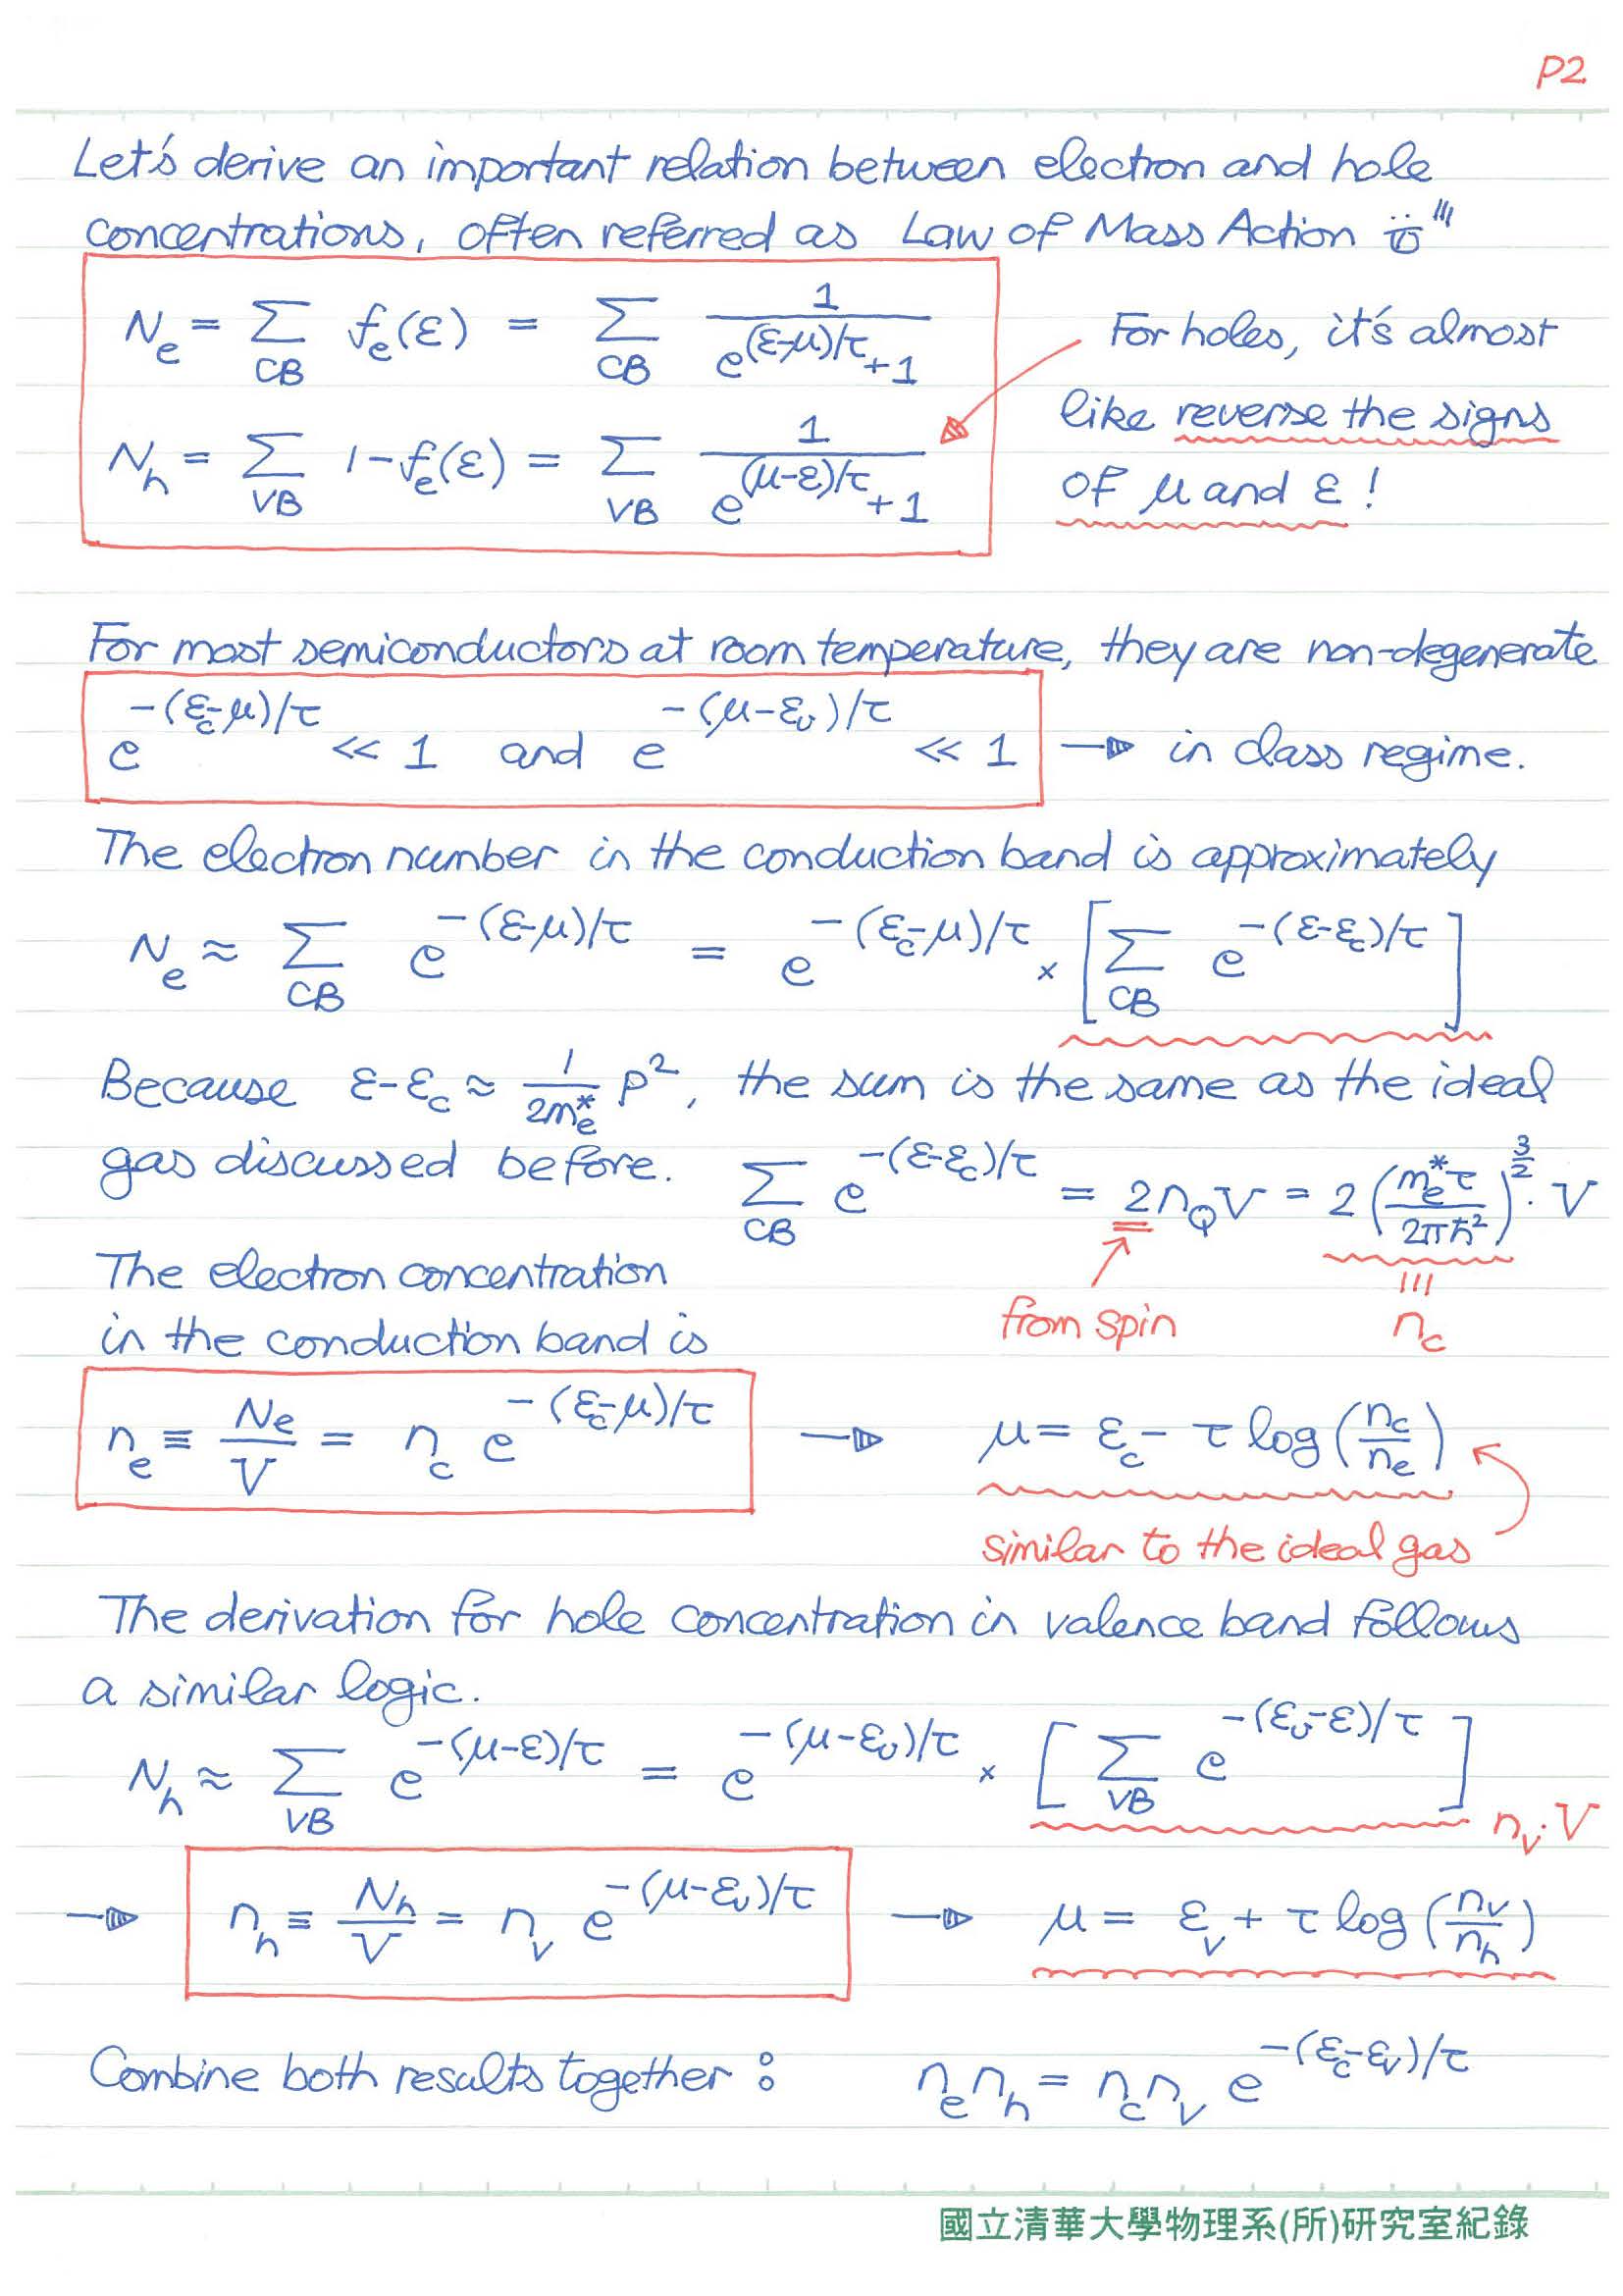 P2
Let's derive an important relation between electron and hole
concentrations, often referred as Law of Mass Action
N_e = Σ_CB f_e(ε) = Σ_CB 1/(e^{(ε-μ)/τ}+1)
For holes, it's almost
like reverse the signs
of μ and ε!
N_h = Σ_VB 1-f_e(ε) = Σ_VB 1/(e^{(μ-ε)/τ}+1)
For most semiconductors at room temperature, they are non-degenerate
e^{-(ε_c-μ)/τ} << 1 and e^{-(μ-ε_v)/τ} << 1 → in class regime.
The electron number in the conduction band is approximately
N_e ≈ Σ_CB e^{-(ε-μ)/τ} = e^{-(ε_c-μ)/τ} × [Σ_CB e^{-(ε-ε_c)/τ}]
Because ε-ε_c ≈ 1/(2m_e^*) p², the sum is the same as the ideal
gas discussed before. Σ_CB e^{-(ε-ε_c)/τ} = 2n_Q V = 2(m_e^*τ/2πħ²)^{3/2}·V
The electron concentration
in the conduction band is
from spin
||| n_c
n_e ≡ N_e/V = n_c e^{-(ε_c-μ)/τ} → μ = ε_c - τ log(n_c/n_e)
similar to the ideal gas
The derivation for hole concentration in valence band follows
a similar logic.
N_h ≈ Σ_VB e^{-(μ-ε)/τ} = e^{-(μ-ε_v)/τ} × [Σ_VB e^{-(ε_v-ε)/τ}] n_v·V
→ n_h ≡ N_h/V = n_v e^{-(μ-ε_v)/τ} → μ = ε_v + τ log(n_v/n_h)
Combine both results together: n_e n_h = n_c n_v e^{-(ε_c-ε_v)/τ}
國立清華大學物理系(所)研究室紀錄